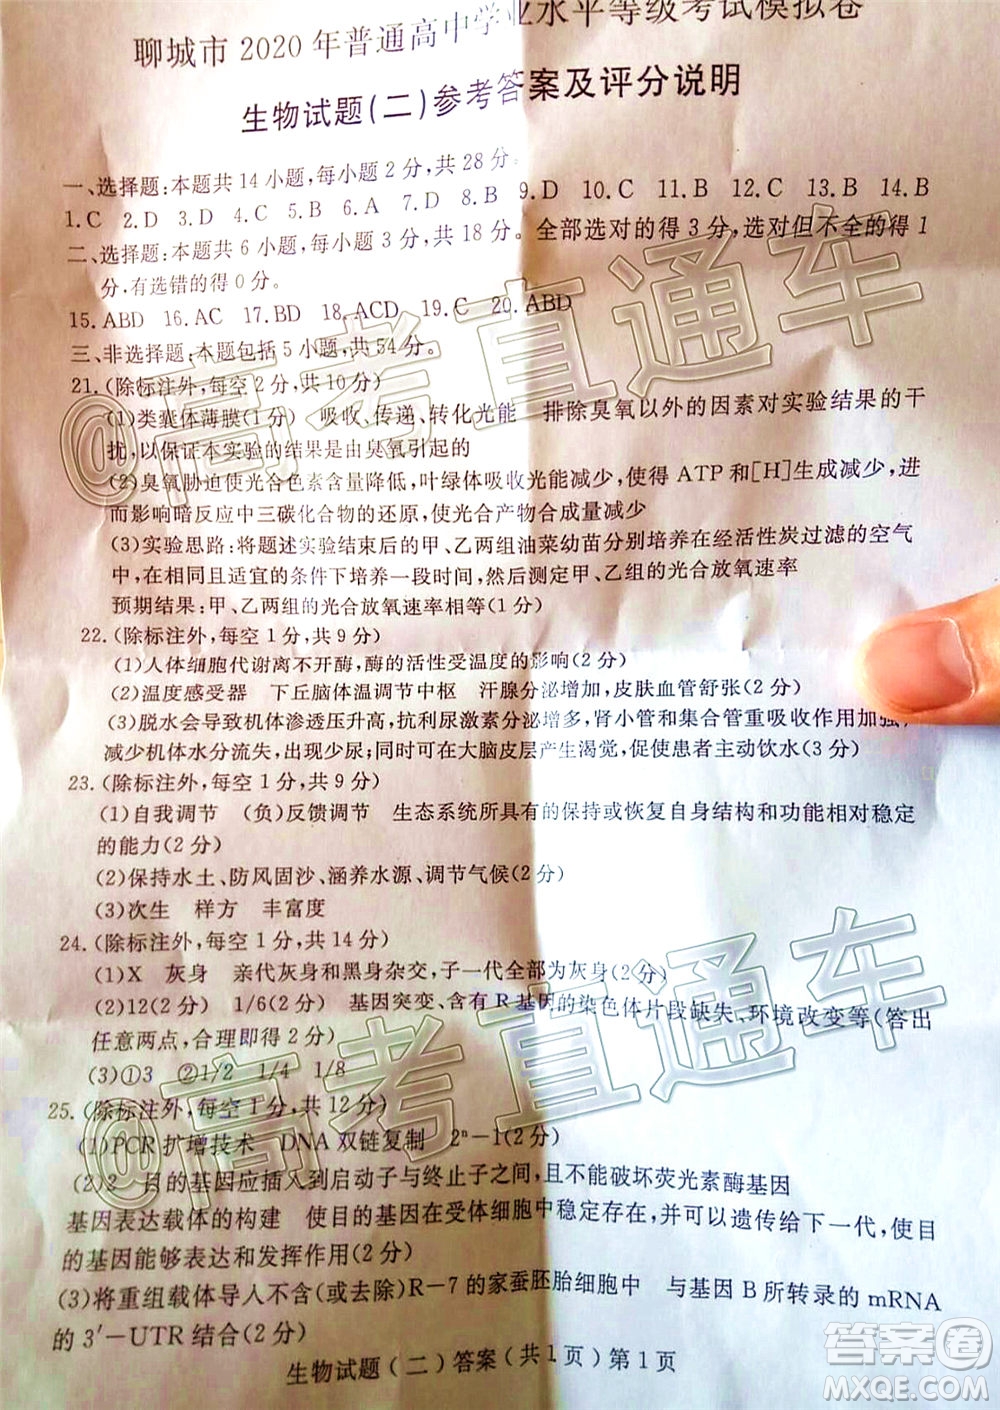 聊城市 2020 年普通高中学业水平等级考试模拟卷
生物试题(二)参考答案及评分说明
一、选择题:本题共 14 小题,每小题 2 分,共 28 分。
1.C 2.D 3.D 4.B 5.A 6.A 7.C 8.B 9.D 10.C 11.B 12.C 13.B 14.B
二、选择题:本题共 6 小题,每小题 3 分,共 18 分。全部选对的得 3 分,选对但不全的得 1
分,有选错的得 0 分。
15.ABD 16.AC 17.BD 18.ACD 19.C 20.ABD
三、非选择题:本题包括 5 小题,共 54 分。
21.(除标注外,每空 2 分,共 10 分)
(1)类囊体薄膜(1 分) 吸收、传递、转化光能 排除臭氧以外的因素对实验结果的干
扰,以保证本实验的结果是由臭氧引起的
(2)臭氧胁迫使光合色素含量降低,叶绿体吸收光能减少,使得 ATP 和[H]生成减少,进
而影响暗反应中三碳化合物的还原,使光合产物合成量减少
(3)实验思路:将题述实验结束后的甲、乙两组油菜幼苗分别培养在经活性炭过滤的空气
中,在相同且适宜的条件下培养一段时间,然后测定甲、乙两组的光合放氧速率
预期结果:甲、乙两组的光合放氧速率相等(1 分)
22.(除标注外,每空 1 分,共 9 分)
(1)人体细胞代谢离不开酶,酶的活性受温度的影响(2 分)
(2)温度感受器 下丘脑体温调节中枢 汗腺分泌增加,皮肤血管舒张(2 分)
(3)脱水会导致机体渗透压升高,抗利尿激素分泌增多,肾小管和集合管重吸收作用加强,
减少机体水分流失,出现少尿;同时可在大脑皮层产生渴觉,促使患者主动饮水(2 分)
23.(除标注外,每空 1 分,共 9 分)
(1)自我调节 (负)反馈调节 生态系统所具有的保持或恢复自身结构和功能相对稳定
的能力(2 分)
(2)保持水土、防风固沙、涵养水源、调节气候(2 分)
(3)次生 样方 丰富度
24.(除标注外,每空 1 分,共 14 分)
(1)X 灰身 亲代灰身和黑身杂交,子一代全部为灰身(2 分)
(2)12(2 分) 1/6(2 分) 基因突变、含有 R 基因的染色体片段缺失、环境改变等(答出
任意两点,合理即得 2 分)
(3)①3 ②1/2 1/4 1/8
25.(除标注外,每空 1 分,共 12 分)
(1)PCR 扩增技术 DNA 双链复制 2ⁿ-1(2 分)
(2)2 目的基因应插入到启动子与终止子之间,且不能破坏荧光素酶基因
基因表达载体的构建 使目的基因在受体细胞中稳定存在,并可以遗传给下一代,使目
的基因能够表达和发挥作用(2 分)
(3)将重组载体导人不含(或去除)R-7 的家蚕胚胎细胞中 与基因 B 所转录的 mRNA
的 3′-UTR 结合(2 分)
生物试题(二)答案(共 1 页)第 1 页
@高考直通车
@高考直通车
答案圈
MXQE.COM